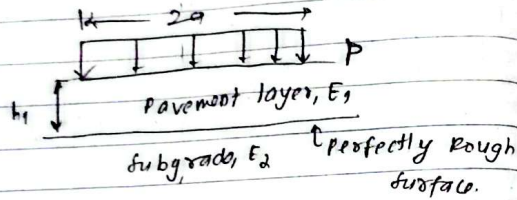 2a
P
h1
Pavement layer, E1
Subgrade, E2
perfectly Rough
Surface.